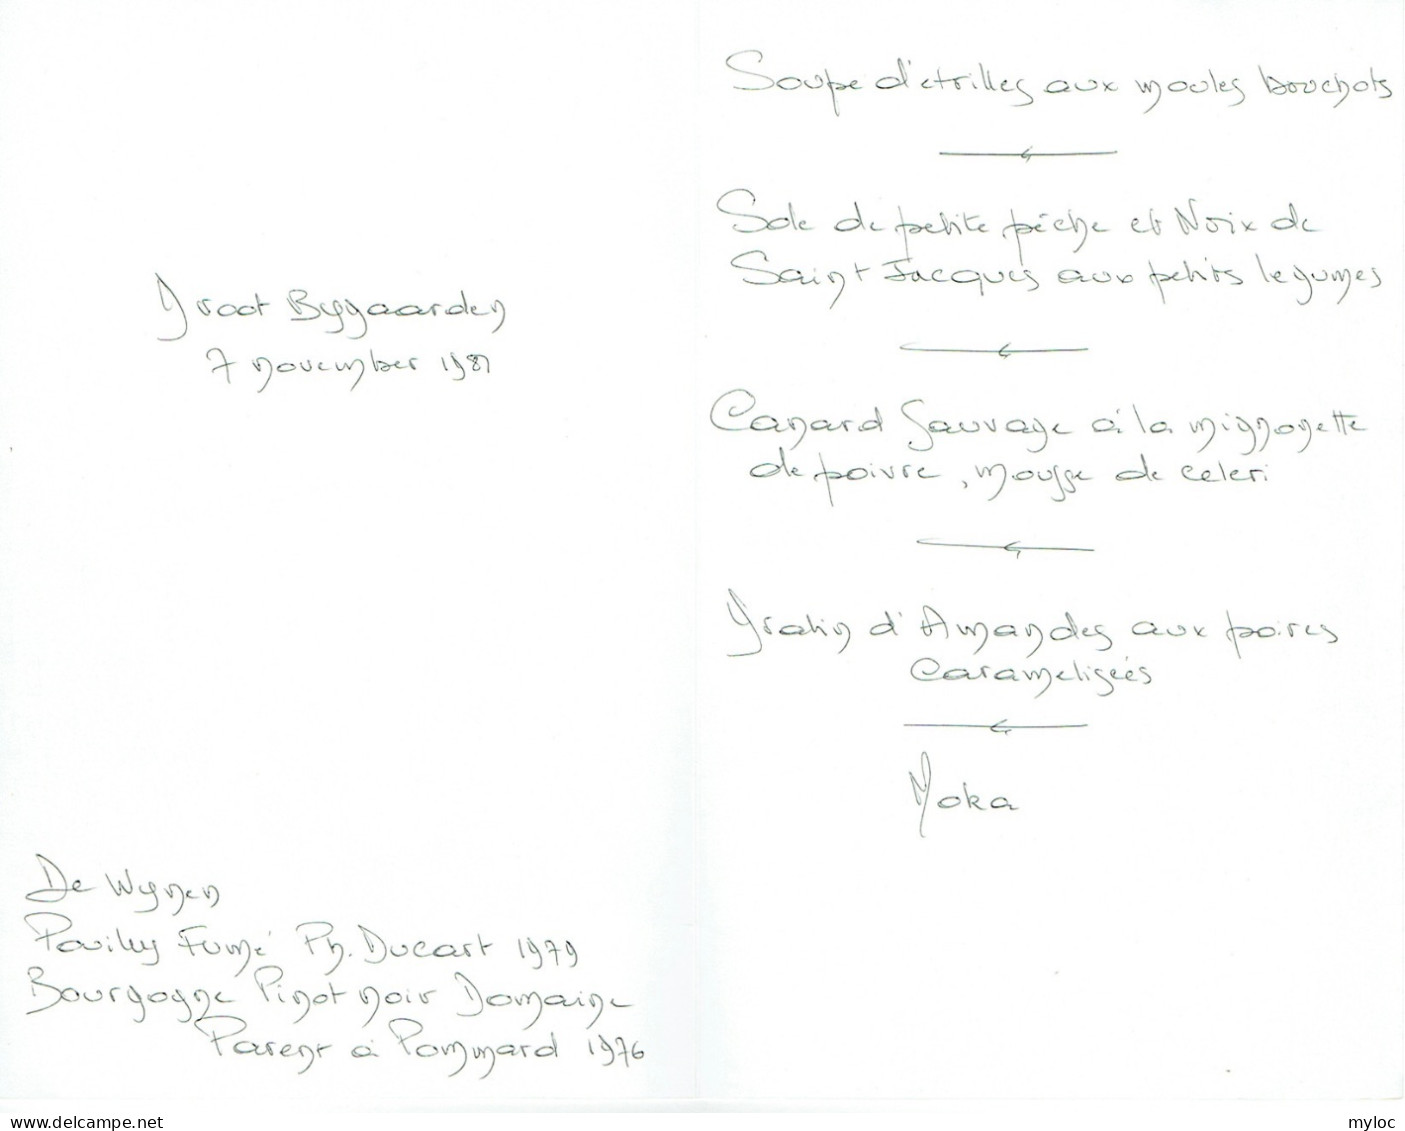 Groot Bijgaarden
7 november 1981
De Wijnen
Pouilly Fumé Ph. Ducart 1979
Bourgogne Pinot noir Domaine
Parent à Pommard 1976
Soupe d'etrilles aux moules bouchots
Sole de petite pêche et Noix de
Saint Jacques aux petits legumes
Canard Sauvage à la mignonette
de poivre, mousse de celeri
Gratin d'Amandes aux poires
Caramelisées
Moka
www.delcampe.net
myloc